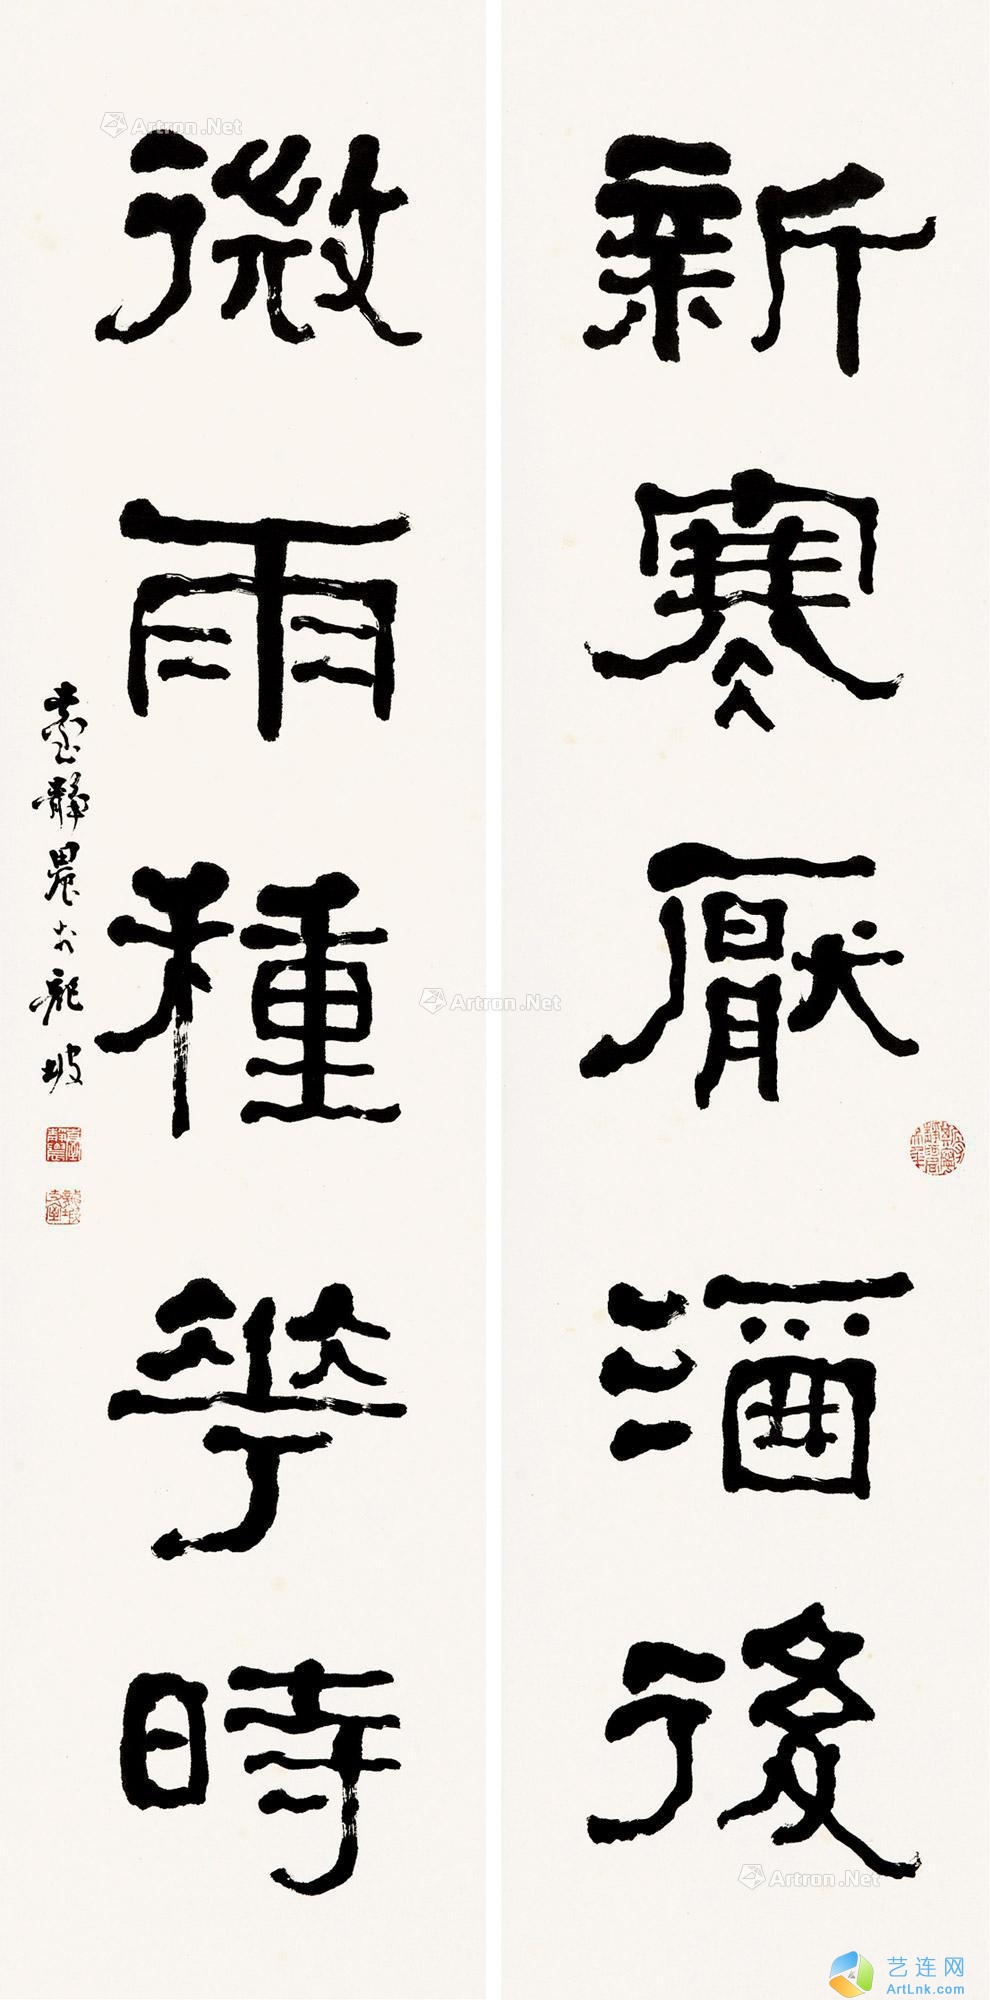 新寒厭酒後
微雨種華時
臺靜農於龍坡
Artron.Net
Artron.Net
Artron.Net
艺连网
ArtLnk.com